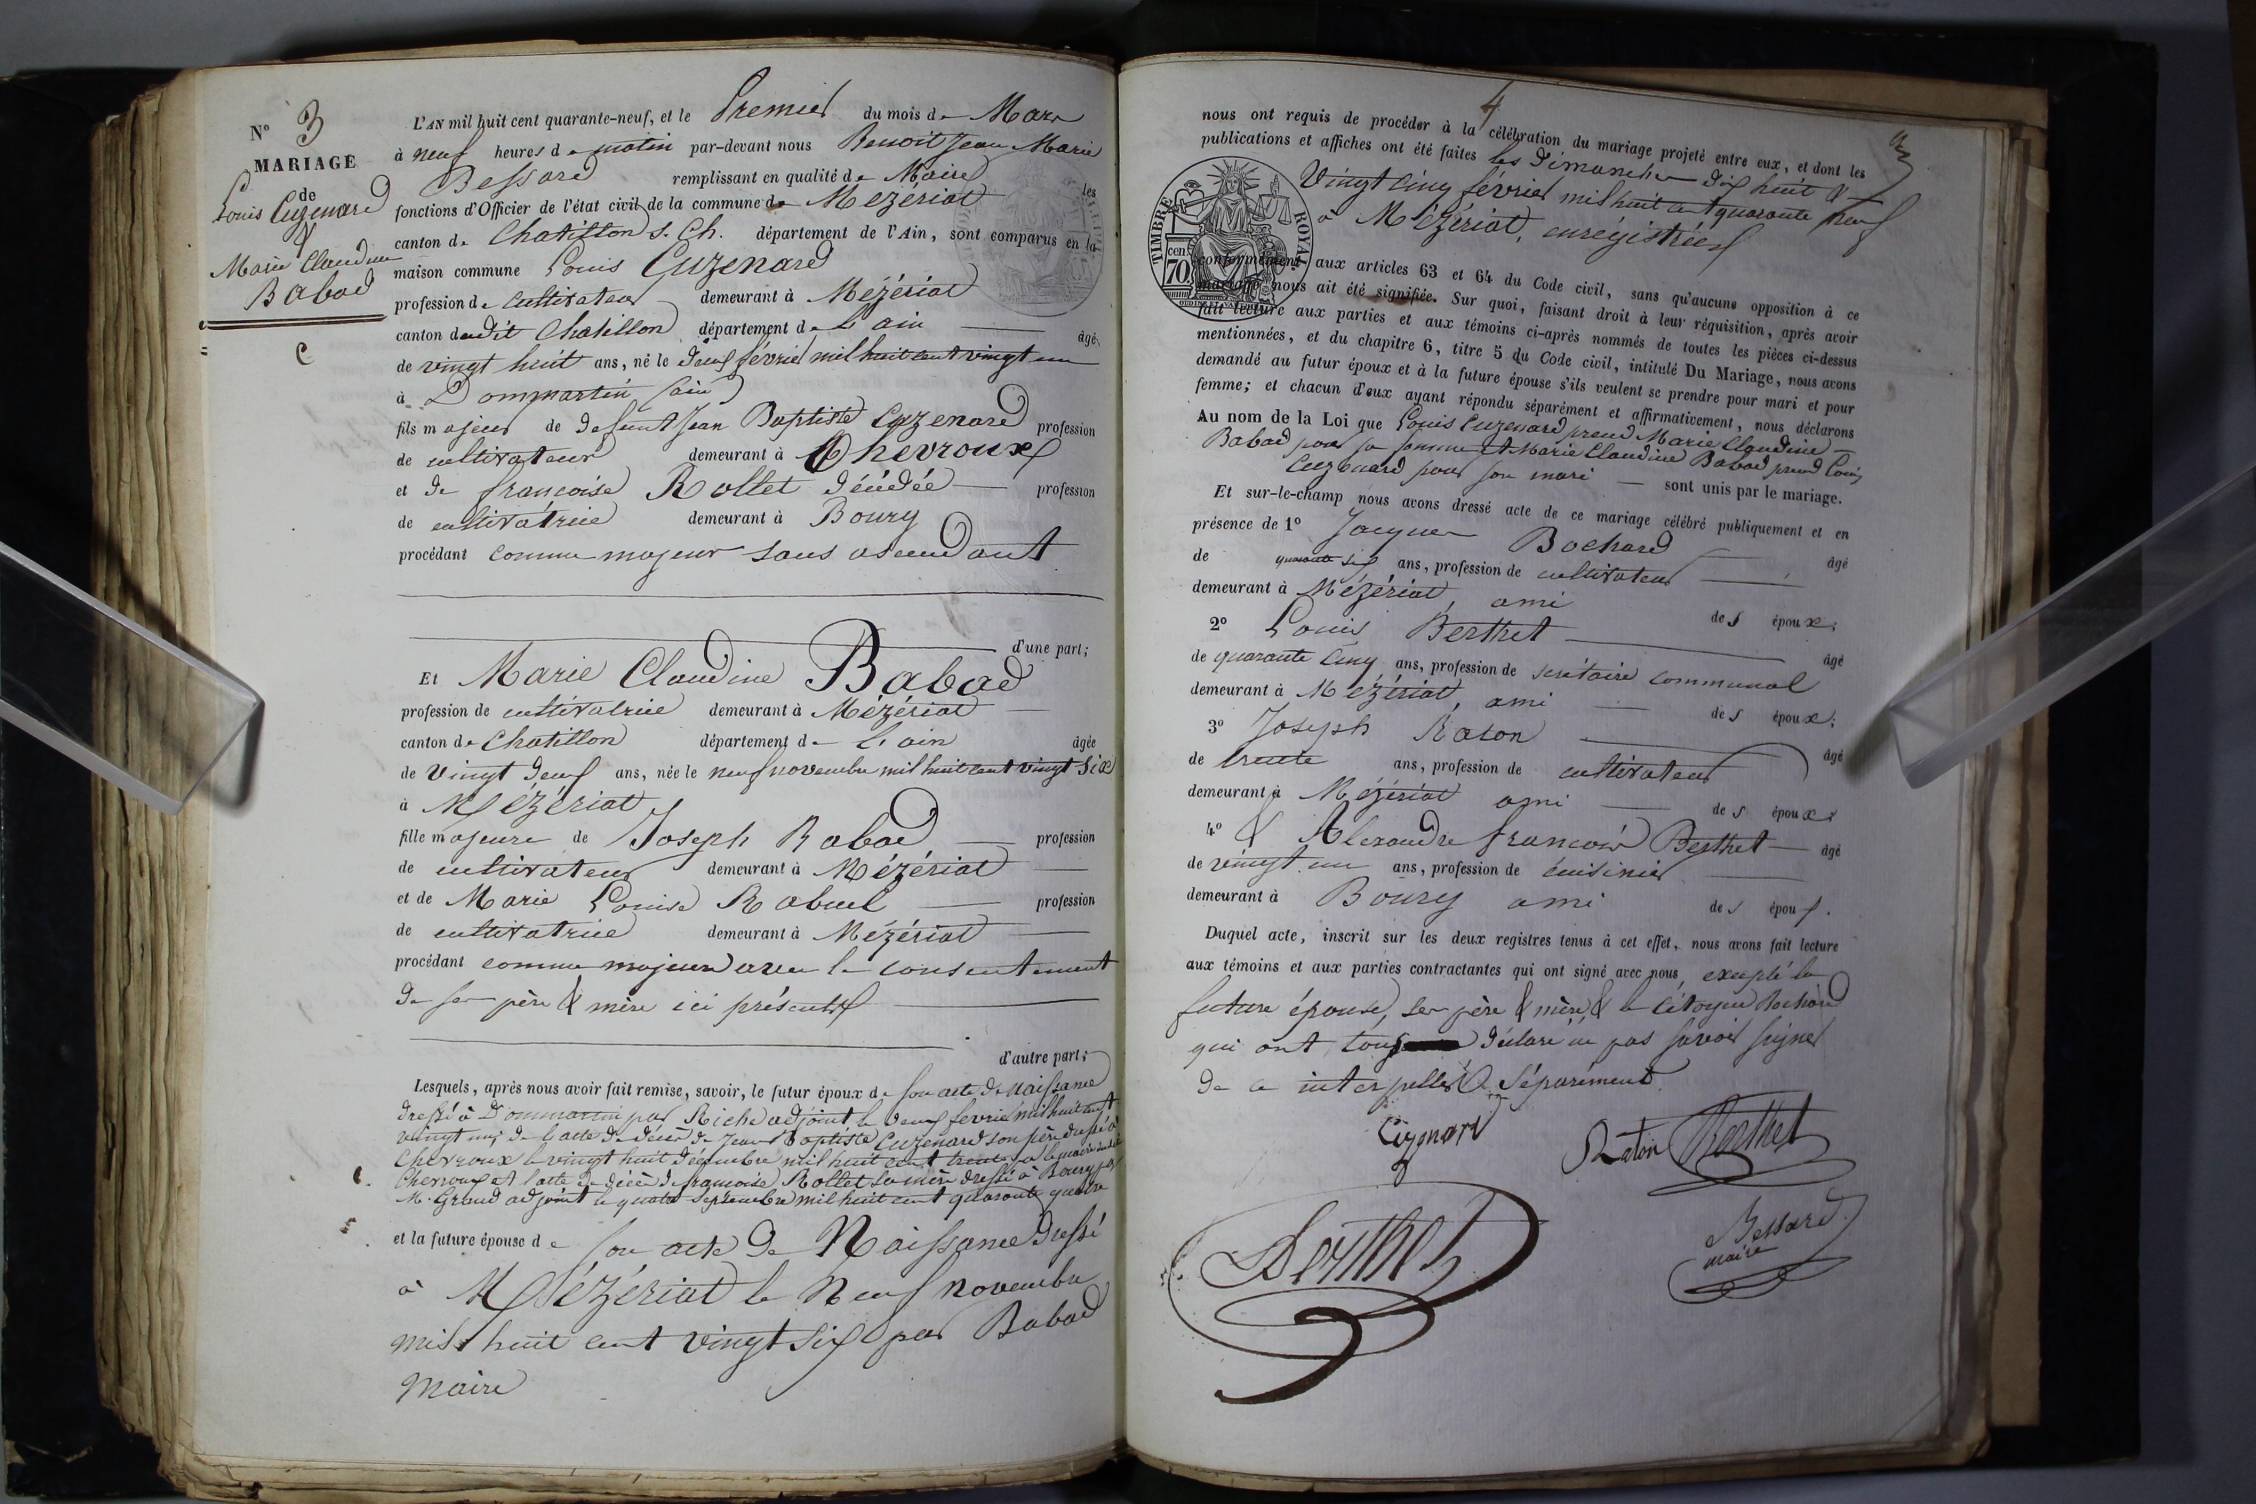 N° 3
MARIAGE
de
Louis Cuzenard
&
Marie Claudine
Babad
C
L'AN mil huit cent quarante-neuf, et le Premier du mois de Mars
à neuf heures de matin par-devant nous Benoit Jean Marie
Bessard remplissant en qualité de Maire les
fonctions d'Officier de l'état civil de la commune de Mézériat
canton de Chatillon s. Ch. département de l'Ain, sont comparus en la
maison commune Louis Cuzenard
profession de cultivateur demeurant à Mézériat
canton dudit Chatillon département de L'ain âgé
de vingt huit ans, né le deux février mil huit cent vingt un
à Dommartin (ain)
fils majeur de defunt Jean Baptiste Cuzenard profession
de cultivateur demeurant à Chevroux
et de françoise Rollet décédée profession
de cultivatrice demeurant à Bourg
procédant comme majeur sans ascendant
d'une part;
Et Marie Claudine Babad
profession de cultivatrice demeurant à Mézériat
canton de Chatillon département de L'ain âgée
de vingt deux ans, née le neuf novembre mil huit cent vingt six
à Mézériat
fille majeure de Joseph Babad profession
de cultivateur demeurant à Mézériat
et de Marie Louise Rabuel profession
de cultivatrice demeurant à Mézériat
procédant comme majeure avec le consentement
de ses père & mère ici présents
d'autre part;
Lesquels, après nous avoir fait remise, savoir, le futur époux de son acte de Naissance
dressé à Dommartin par Riche adjoint le deux fevrier mil huit cent
vingt un; de l'acte de décès de Jean Baptiste Cuzenard son père dressé à
Chevroux le vingt huit décembre mil huit cent trente par le maire dudit
Chevroux et l'acte de décès de françoise Rollet sa mère dressé à Bourg par
M. Graud adjoint le quatre Septembre mil huit cent quarante quatre
et la future épouse de son acte de Naissance dressé
à Mézériat le Neuf novembre
mil huit cent vingt six par Babad
Maire
4
3
nous ont requis de procéder à la célébration du mariage projeté entre eux, et dont les
publications et affiches ont été faites les dimanches dix huit &
Vingt cinq février mil huit cent quarante neuf
à Mézériat, enregistrées
TIMBRE ROYAL
70 cen.
conformément aux articles 63 et 64 du Code civil, sans qu'aucune opposition à ce
mariage nous ait été signifiée. Sur quoi, faisant droit à leur réquisition, après avoir
fait lecture aux parties et aux témoins ci-après nommés de toutes les pièces ci-dessus
mentionnées, et du chapitre 6, titre 5 du Code civil, intitulé Du Mariage, nous avons
demandé au futur époux et à la future épouse s'ils veulent se prendre pour mari et pour
femme; et chacun d'eux ayant répondu séparément et affirmativement, nous déclarons
Au nom de la Loi que Louis Cuzenard prend Marie Claudine
Babad pour sa femme et Marie Claudine Babad prend Louis
Cuzenard pour son mari sont unis par le mariage.
Et sur-le-champ nous avons dressé acte de ce mariage célébré publiquement et en
présence de 1° Jacques Bochard âgé
de quarante six ans, profession de cultivateur
demeurant à Mézériat, ami des époux;
2° Louis Berthet âgé
de quarante cinq ans, profession de secrétaire communal
demeurant à Mézériat, ami des époux;
3° Joseph Raton âgé
de trente ans, profession de cultivateur
demeurant à Mézériat ami des époux;
4° & Alexandre françois Berthet âgé
de vingt un ans, profession de cuisinier
demeurant à Bourg ami des époux.
Duquel acte, inscrit sur les deux registres tenus à cet effet, nous avons fait lecture
aux témoins et aux parties contractantes qui ont signé avec nous, excepté la
future épouse, ses père & mère & le citoyen Bochard
qui ont tous déclaré ne pas savoir signer
de ce interpellés séparément.
Cuzenard
Raton Berthet
Berthet
Bessard
maire